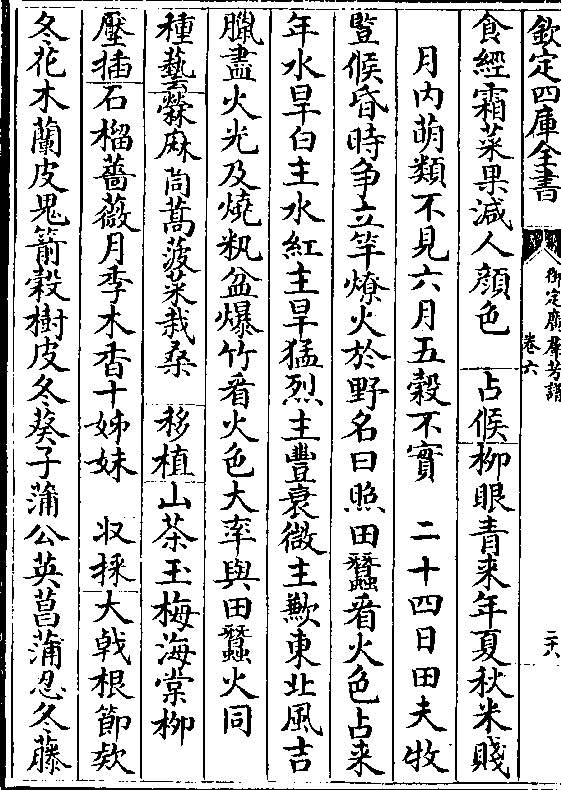 欽定四庫全書
御定廣羣芳譜
卷六
二十八
食經霜菜果減人顔色　占候柳眼青来年夏秋米賤
月内萌類不見六月五穀不實　二十四日田夫牧
豎候昏時争立竿燎火於野名曰照田蠶看火色占来
年水旱白主水紅主旱猛烈主豐衰微主歉東北風吉
臘盡火光及燒籸盆爆竹看火色大率與田蠶火同
種藝檾麻茼蒿菠菜栽桑　移植山茶玉梅海棠柳
壓插石榴薔薇月季木香十姊妹　収採大戟根節欵
冬花木蘭皮鬼箭榖樹皮冬葵子蒲公英菖蒲忍冬藤